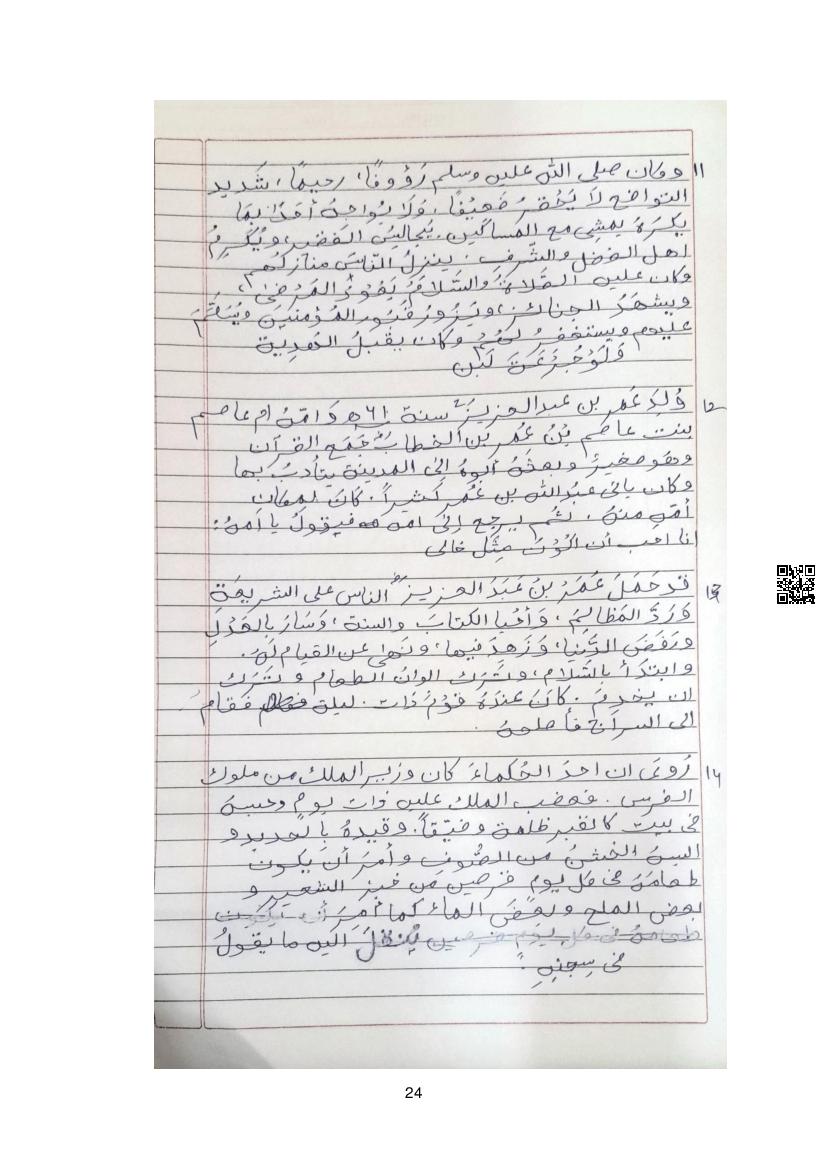 ۱۱ وكان صلى الله عليه وسلم رَؤُوفًا، رحيمًا، شديد
التواضع لاَ يَحْقِرُ ضَعِيْفًا، وَلَا يُوَاجِهُ أحَدًا بِمَا
يكرَهُ يمشِي مع المساكين. يُجَالِسُ الفقير، ويُكْرِمُ
اهل الفضل والشّرف. ينزلُ النّاسَ منازلهم
وكان عليه الصّلاةُ والسَّلَامُ يَعُوْدُ المَرْضٰى،
ويشهَدُ الجنائز، ويَزُورُ قُبُورَ المُؤمنينَ ويُسَلِّمُ
عليهم ويستغفرُ لَهُمْ وكان يقبلُ الهَدِية
وَلَوْ جُرْعَةَ لَبَنٍ
۱۲ وُلِدَ عُمَر بن عبدالعزيز سنة ٦١ه وَامّهُ ام عاصم
بنت عاصم بْنُ عُمر بن الخطاب جَمَع القرآن
وهو صغيرٌ وبعثَهُ أبوهُ إلى المدينة يتأدبُ بها
وكان ياتى عبدُالله بن عُمر كَثيراً. كانَ لمكان
أمّهِ منهُ. ثم يرجع اِلىٰ امه فيقولُ يا أمهُ:
انا احب أن اكُوْنَ مِثْلَ خالى
۱۳ قد حَمَلَ عُمَرُ بنُ عَبَدَ العزيز الناس على الشريعَة
وَرَدَّ المَظَالِمَ، وَأحْيَا الكتابَ والسنة، وَسَارَ بِالعَدْلِ
ورَفَضَ الدُّنيا، وَزَهدَ فيها، ونَهٰى عن القيام لَهُ.
وابتدَأ بالسَّلام، وتَرَك الوانَ الطعام وتَرَكَ
ان يخدمَ. كانَ عندَهُ قَوْمٌ ذَات. ليلة فقام
الى السراج فأصلحهُ.
۱۴ رُوِىَ ان احدَ الحُكماءَ كان وزير الملك من ملوك
الفرس. فغضب الملك عليه ذات يومٍ وحبسهُ
فى بيت كالقبر ظلمة وضيّقاً. وقيدهُ بالحديد و
البسهُ الخشنُ من الصُّوف وأمرَ أن يكونَ
طعامَهُ فى كل يوم قرصين من خبز الشعير و
بعض الملح وبعضَ الماءُ كما أمرَ أن يكون
طعامهُ فى كل يوم قرصين ينقلُ اليه ما يقولُ
فى سِجْنِهِ.
24